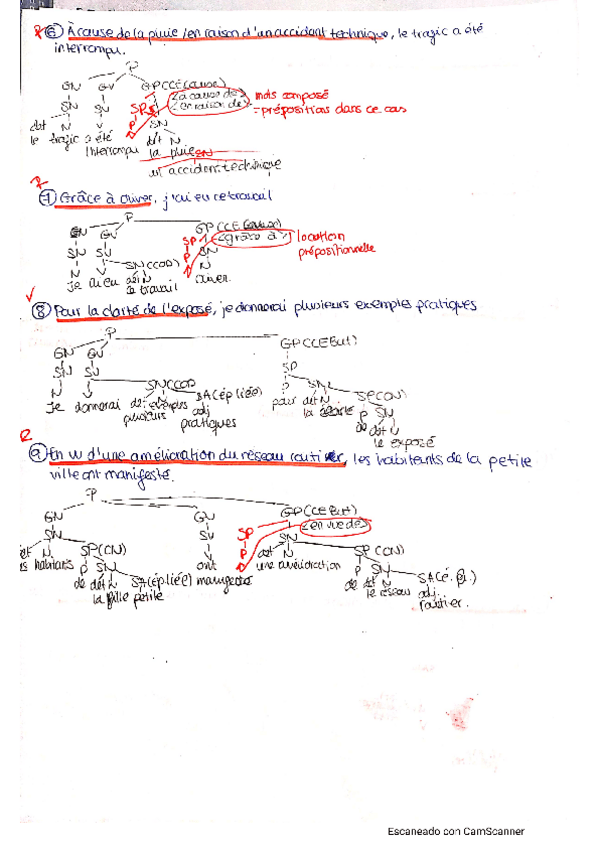 R ⑥ À cause de la pluie / en raison d'un accident technique, le trafic a été
interrompu.
P
GN GV GPCCE (cause)
<à cause de> mots composé
SN SV SP <en raison de> = prépositions dans ce cas
dét N V P SN
le trafic a été dét N
interrompu la pluie
un accident technique
R
⑦ Grâce à Olivier, j'ai eu ce travail
P
GN GV GPCCE (cause)
SP <grâce à> location
SN SV P SN prépositionnelle
N V SN (COD) N
je ai eu dét N Olivier.
ce travail
⑧ Pour la clarté de l'exposé, je donnerai plusieurs exemples pratiques
P
GN GV GPCCE But)
SN SV SP
N V SN (COD) P SN
Je donnerai dét exemples SA (ép liée) pour dét N SP (CN)
plusieurs adj la clarté P SN
pratiques de dét N
le exposé
R
⑨ En vu d'une amélioration du réseau routier, les habitants de la petite
ville ont manifesté.
P
GN GV GP (CCE But)
SN SV SP <en vue de>
dét N SP (CN) P SN
habitants P SN ont dét N SP (CN)
de dét N SA (ép liée) manifester une amélioration P SN
la ville petite de dét N SA (é. pl.)
le réseau adj.
routier.
Escaneado con CamScanner